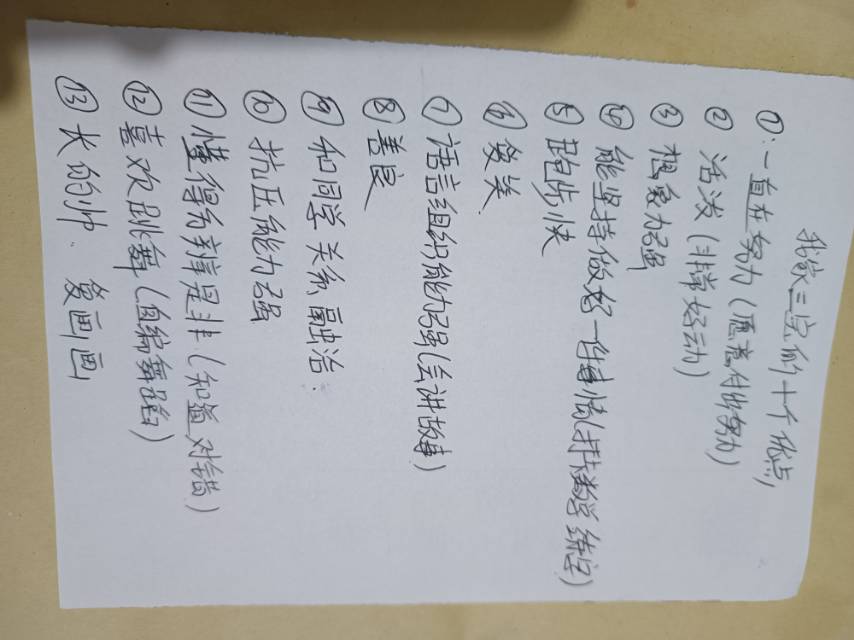 我家三宝的十个优点,
①:一直在努力(愿意付出努力)
② 活泼(非常好动)
③ 想象力强
④ 能坚持做好一件事情(打卡数学 练字)
⑤ 跑步快
⑥ 爱笑
⑦ 语言组织能力强(会讲故事)
⑧ 善良
⑨ 和同学关系融洽.
⑩ 抗压能力强
⑪ 懂得分辨是非(知道对错)
⑫ 喜欢跳舞(自编舞蹈)
⑬ 长的帅、爱画画